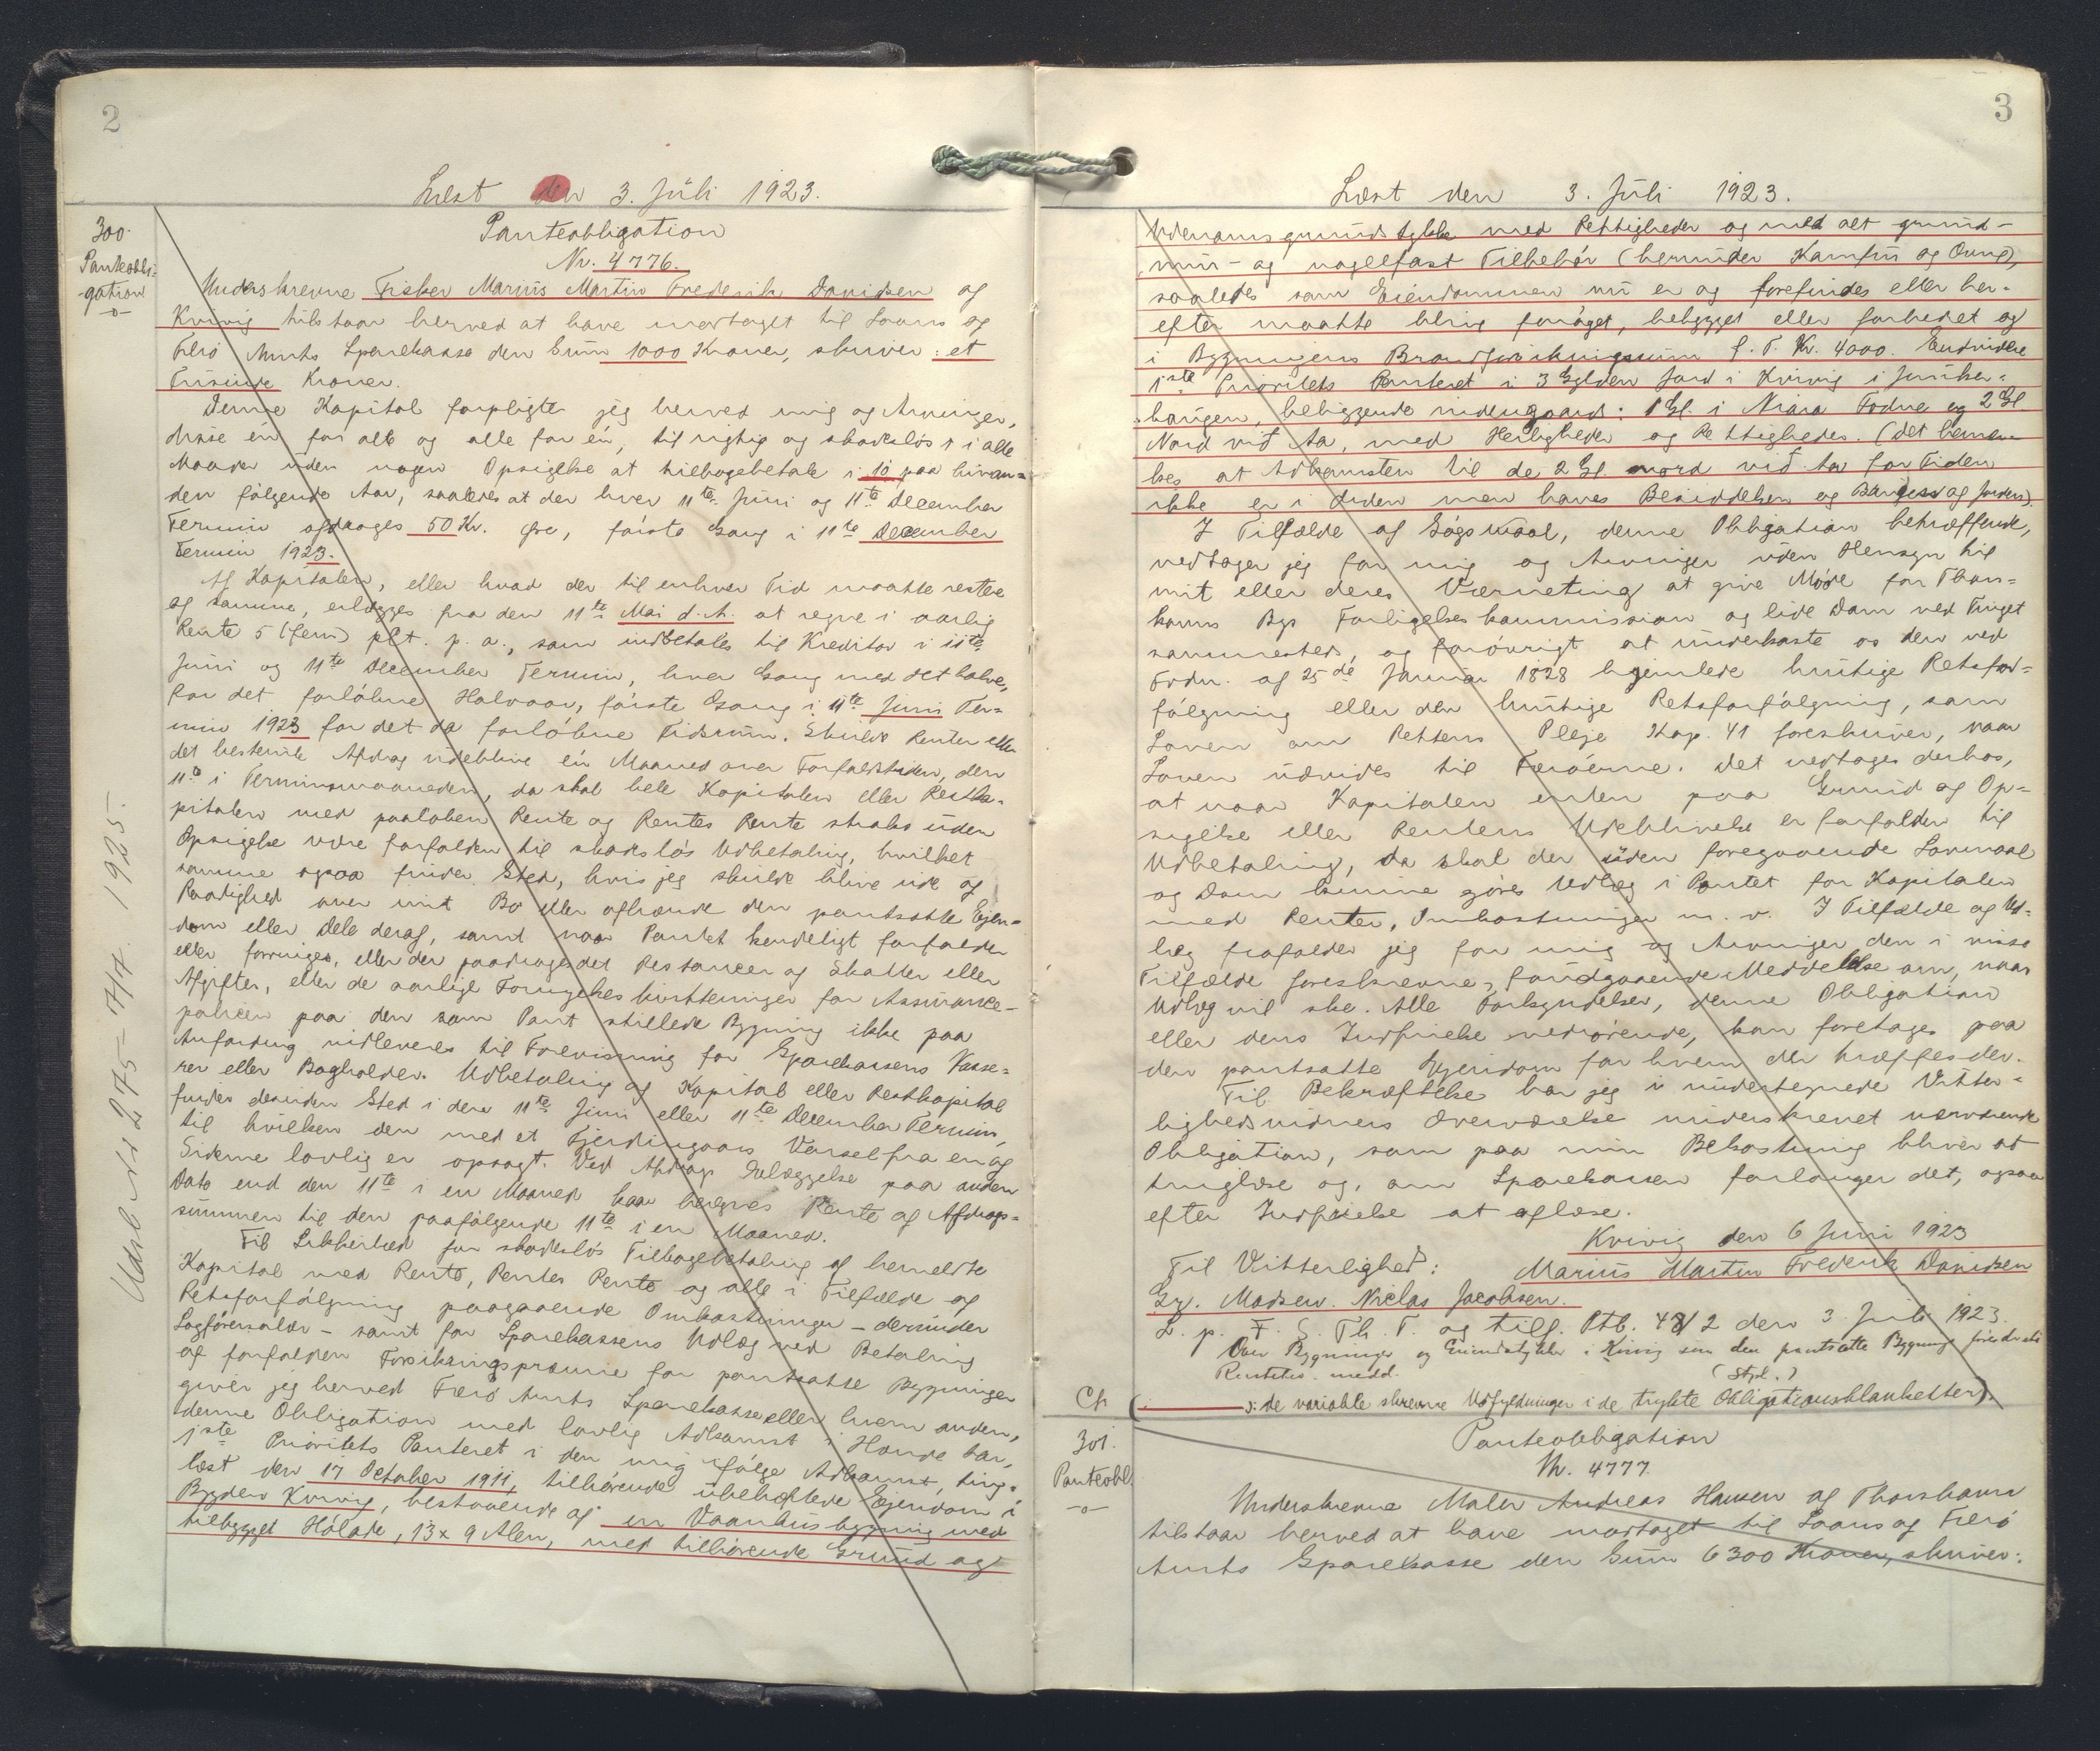 2
Læst den 3. Juli 1923.
300.
Panteobli-
gation
-o-
Panteobligation
Nr. 4776.
Underskrevne Fisker Marius Martin Frederik Davidsen af
Kvivig tilstaar herved at have modtaget til Laans af
Færø Amts Sparekasse den Sum 1000 Kroner, skriver: et
Tusinde Kroner.
Denne Kapital forpligter jeg herved mig og Arvinger,
disse én for alle og alle for én, til rigtig og skadesløs i alle
Maader uden nogen Opsigelse at tilbagebetale i 10 paa hinan-
den følgende Aar, saaledes at der hver 11te Juni og 11te December
Termin afdrages 50 Kr. Øre, første Gang i 11te December
Termin 1923.
Af Kapitalen, eller hvad der til enhver Tid maatte restere
af samme, erlægges fra den 11te Mai d. A. at regne i aarlig
Rente 5 (fem) pCt. p. a., som indbetales til Kreditor i 11te
Juni og 11te December Termin, hver Gang med det halve,
for det forløbne Halvaar, første Gang i 11te Juni Ter-
min 1923 for det da forløbne Tidsrum. Skulde Renter eller
det bestemte Afdrag udeblive én Maaned over Forfaldstiden, den
11te i Terminsmaaneden, da skal hele Kapitalen eller Restka-
pitalen med paaløben Rente og Rentes Rente straks uden
Opsigelse være forfalden til skadesløs Udbetaling, hvilket
samme ogsaa finder Sted, hvis jeg skulde blive ude af
Raadighed over mit Bo eller afhænde den pantsatte Ejen-
dom eller Dele deraf, samt naar Pantet kendeligt forfalder
eller forringes, eller der paadrages det Restancer af Skatter eller
Afgifter, eller de aarlige Fornyelseskvitteringer for Assurance-
policen paa den som Pant stillede Bygning ikke paa
Anfordring udleveres til Forevisning for Sparekassens Kasse-
rer eller Bogholder. Udbetaling af Kapital eller Restkapital
finder desuden Sted i den 11te Juni eller 11te December Termin,
til hvilken den med et Fjerdingaars Varsel fra en af
Siderne lovlig er opsagt. Ved Afdrags Erlæggelse paa anden
Dato end den 11te i en Maaned kan beregnes Rente af Afdrags-
summen til den paafølgende 11te i en Maaned.
Til Sikkerhed for skadesløs Tilbagebetaling af bemeldte
Kapital med Rente, Rentes Rente og alle i Tilfælde af
Retsforfølgning paagaaende Omkostninger – derunder
Sagførersalær – samt for Sparekassens Udlæg ved Betaling
af forfalden Forsikringspræmie for pantsatte Bygninger
giver jeg herved Færø Amts Sparekasse eller hvem anden,
denne Obligation med lovlig Adkomst i Hænde har,
1ste Prioritets Panteret i den mig ifølge Adkomst, ting-
læst den 17 October 1911, tilhørende ubehæftede Ejendom i
Bygden Kvivig, bestaaende af en Vaanhusbygning med
tilbygget Hølade, 13 x 9 Alen, med tilhørende Grund og
Udsl. N. 275 – 7/4. 1925.
3
Læst den 3. Juli 1923.
Udenomsgrundstykke med Rettigheder og med alt grund-
mur- og nagelfast Tilbehør (herunder Komfur og Ovne),
saaledes som Eiendommen nu er og forefindes eller her-
efter maatte bliv forøget, bebygget eller forbedret og
i Bygningens Brandforsikringssum f. T. Kr. 4000. Endvidere
1ste Prioritets Panteret i 3 Gylden Jord i Kvivig i Junker-
haugen, beliggende indengaards: 1 Gl. i Niara Todne og 2 Gl
Nord við Aa, med Herligheder og Rettigheder. (Det bemær-
kes at Adkomsten til de 2 Gl. nord við Aa for Tiden
ikke er i Orden men haves Besiddelsen og Brugen af Jorden).
I Tilfælde af Søgsmaal, denne Obligation betræffende,
vedtager jeg for mig og Arvinger uden Hensyn til
mit eller deres Værneting at give Møde for Thors-
havns Bys Forligelseskommission og lide Dom ved Tinget
sammesteds, og forøvrigt at underkaste os den ved
Frdn. af 25de Januar 1828 hjemlede hurtige Retsfor-
følgning eller den hurtige Retsforfølgning, som
Loven om Rettens Pleje Kap. 41 foreskriver, naar
Loven udvides til Færøerne. Det vedtages derhos,
at naar Kapitalen enten paa Grund af Op-
sigelse eller Rentens Udeblivelse er forfalden til
Udbetaling, da skal der uden foregaaende Lovmaal
og Dom kunne gøres Udlæg i Pantet for Kapitalen
med Renter, Omkostninger m. v. I Tilfælde af Ud-
læg frafalder jeg for mig og Arvinger den i visse
Tilfælde foreskrevne, forudgaaende Meddelelse om, naar
Udlæg vil ske. Alle Forkyndelser, denne Obligation
eller dens Indfrielse vedrørende, kan foretages paa
den pantsatte Ejendom for hvem der træffes der.
Til Bekræftelse har jeg i undertegnede Vitter-
lighedsvidners Overværelse underskrevet nærværende
Obligation, som paa min Bekostning bliver at
tinglæse og, om Sparekassen forlanger det, ogsaa
efter Indfrielse at aflæse.
Kvivig den 6 Juni 1923
Til Vitterlighed: Marius Martin Frederik Davidsen
Gr. Madsen. Niclas Jacobsen.
L. p. F. S. Th. T. og tilf. Ptb. 48/2 den 3. Juli 1923.
Over Bygninger og Grundstykker i Kvivig som den pantsatte Bygning
Rentetes. medd. (Stpl.)
Ch (: ɔ: de variable skrevne Udfyldninger i de trykte Obligationsblanketter).
301.
Panteobl.
-o-
Panteobligation
Nr. 4777
Underskrevne Maler Andreas Hansen af Thorshavn
tilstaar herved at have modtaget til Laans af Færø
Amts Sparekasse den Sum 6300 Kroner, skriver: